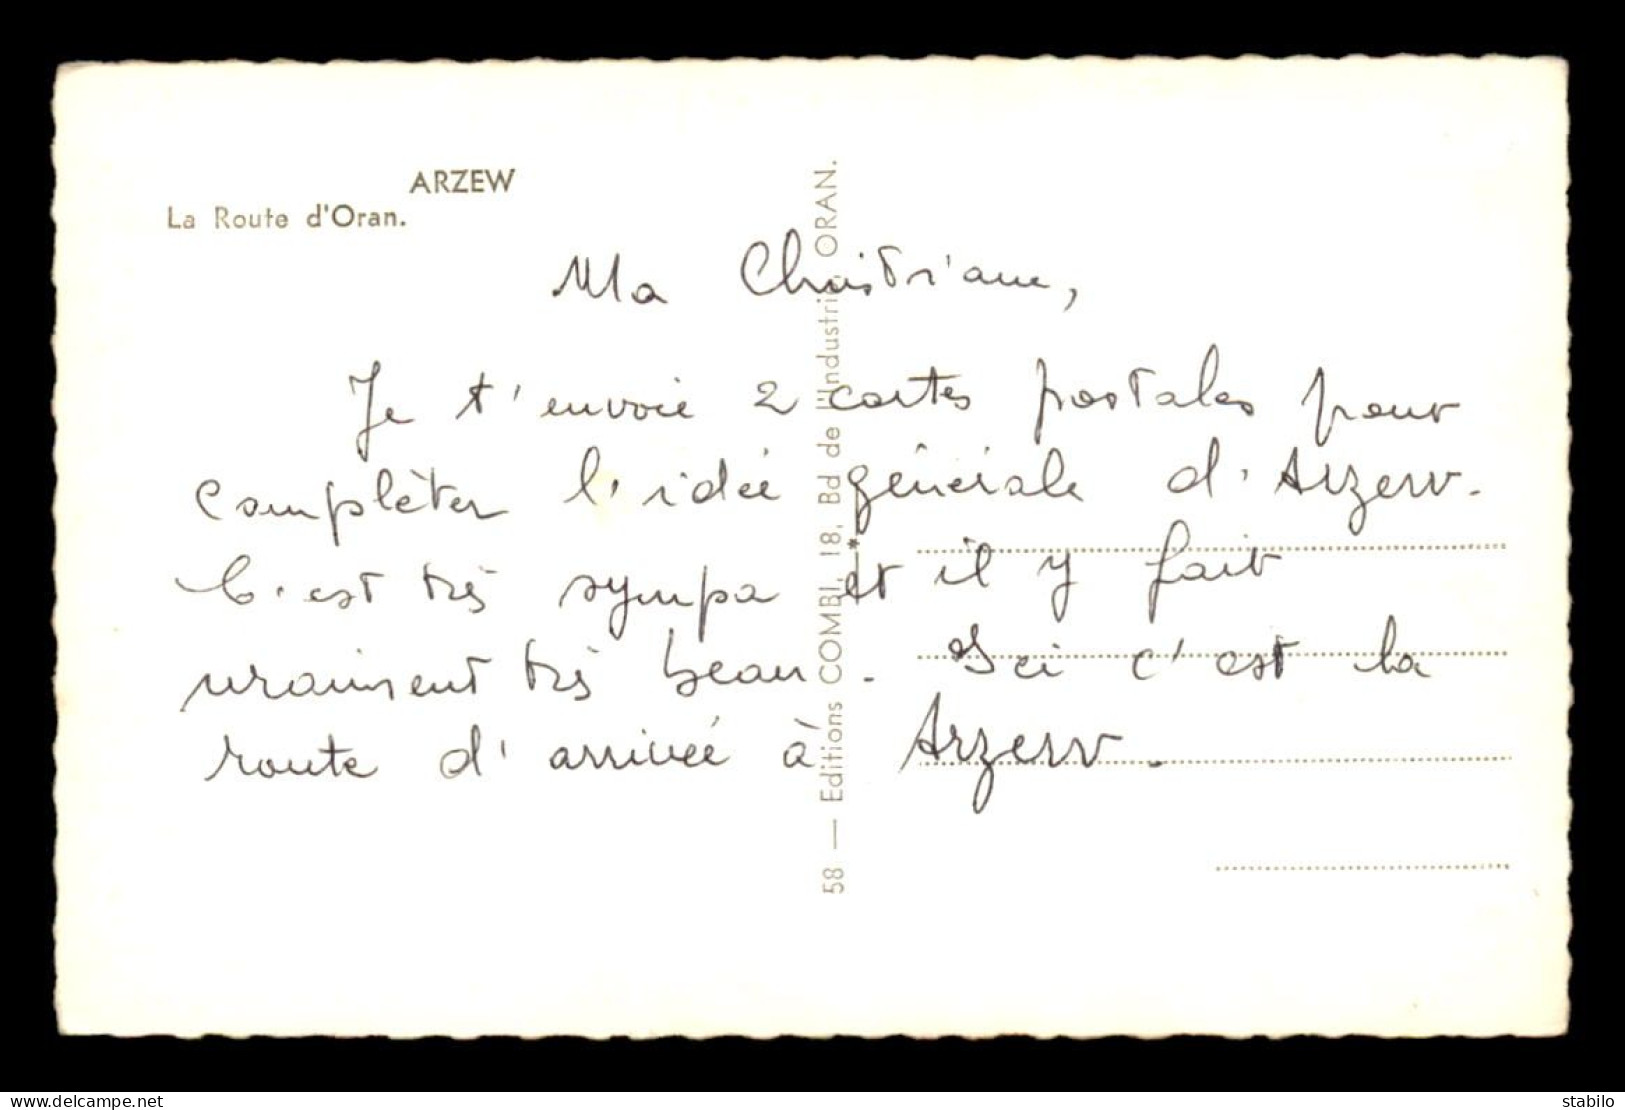 ARZEW
La Route d'Oran.
Ma Christiane,
Je t'envoie 2 cartes postales pour
complèter l'idée générale d'Arzew.
C'est très sympa et il y fait
vraiment très beau. Ici c'est la
route d'arrivée à Arzew.
58 — Editions COMBI, 18, Bd de l'Industrie, ORAN.
www.delcampe.net
stabilo